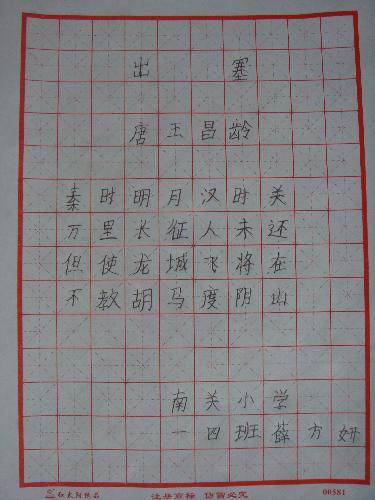 出塞
唐 王昌龄
秦时明月汉时关
万里长征人未还
但使龙城飞将在
不教胡马度阴山
南关小学
一四班薛方妍
红太阳纸品 注册商标 仿冒必究 00581